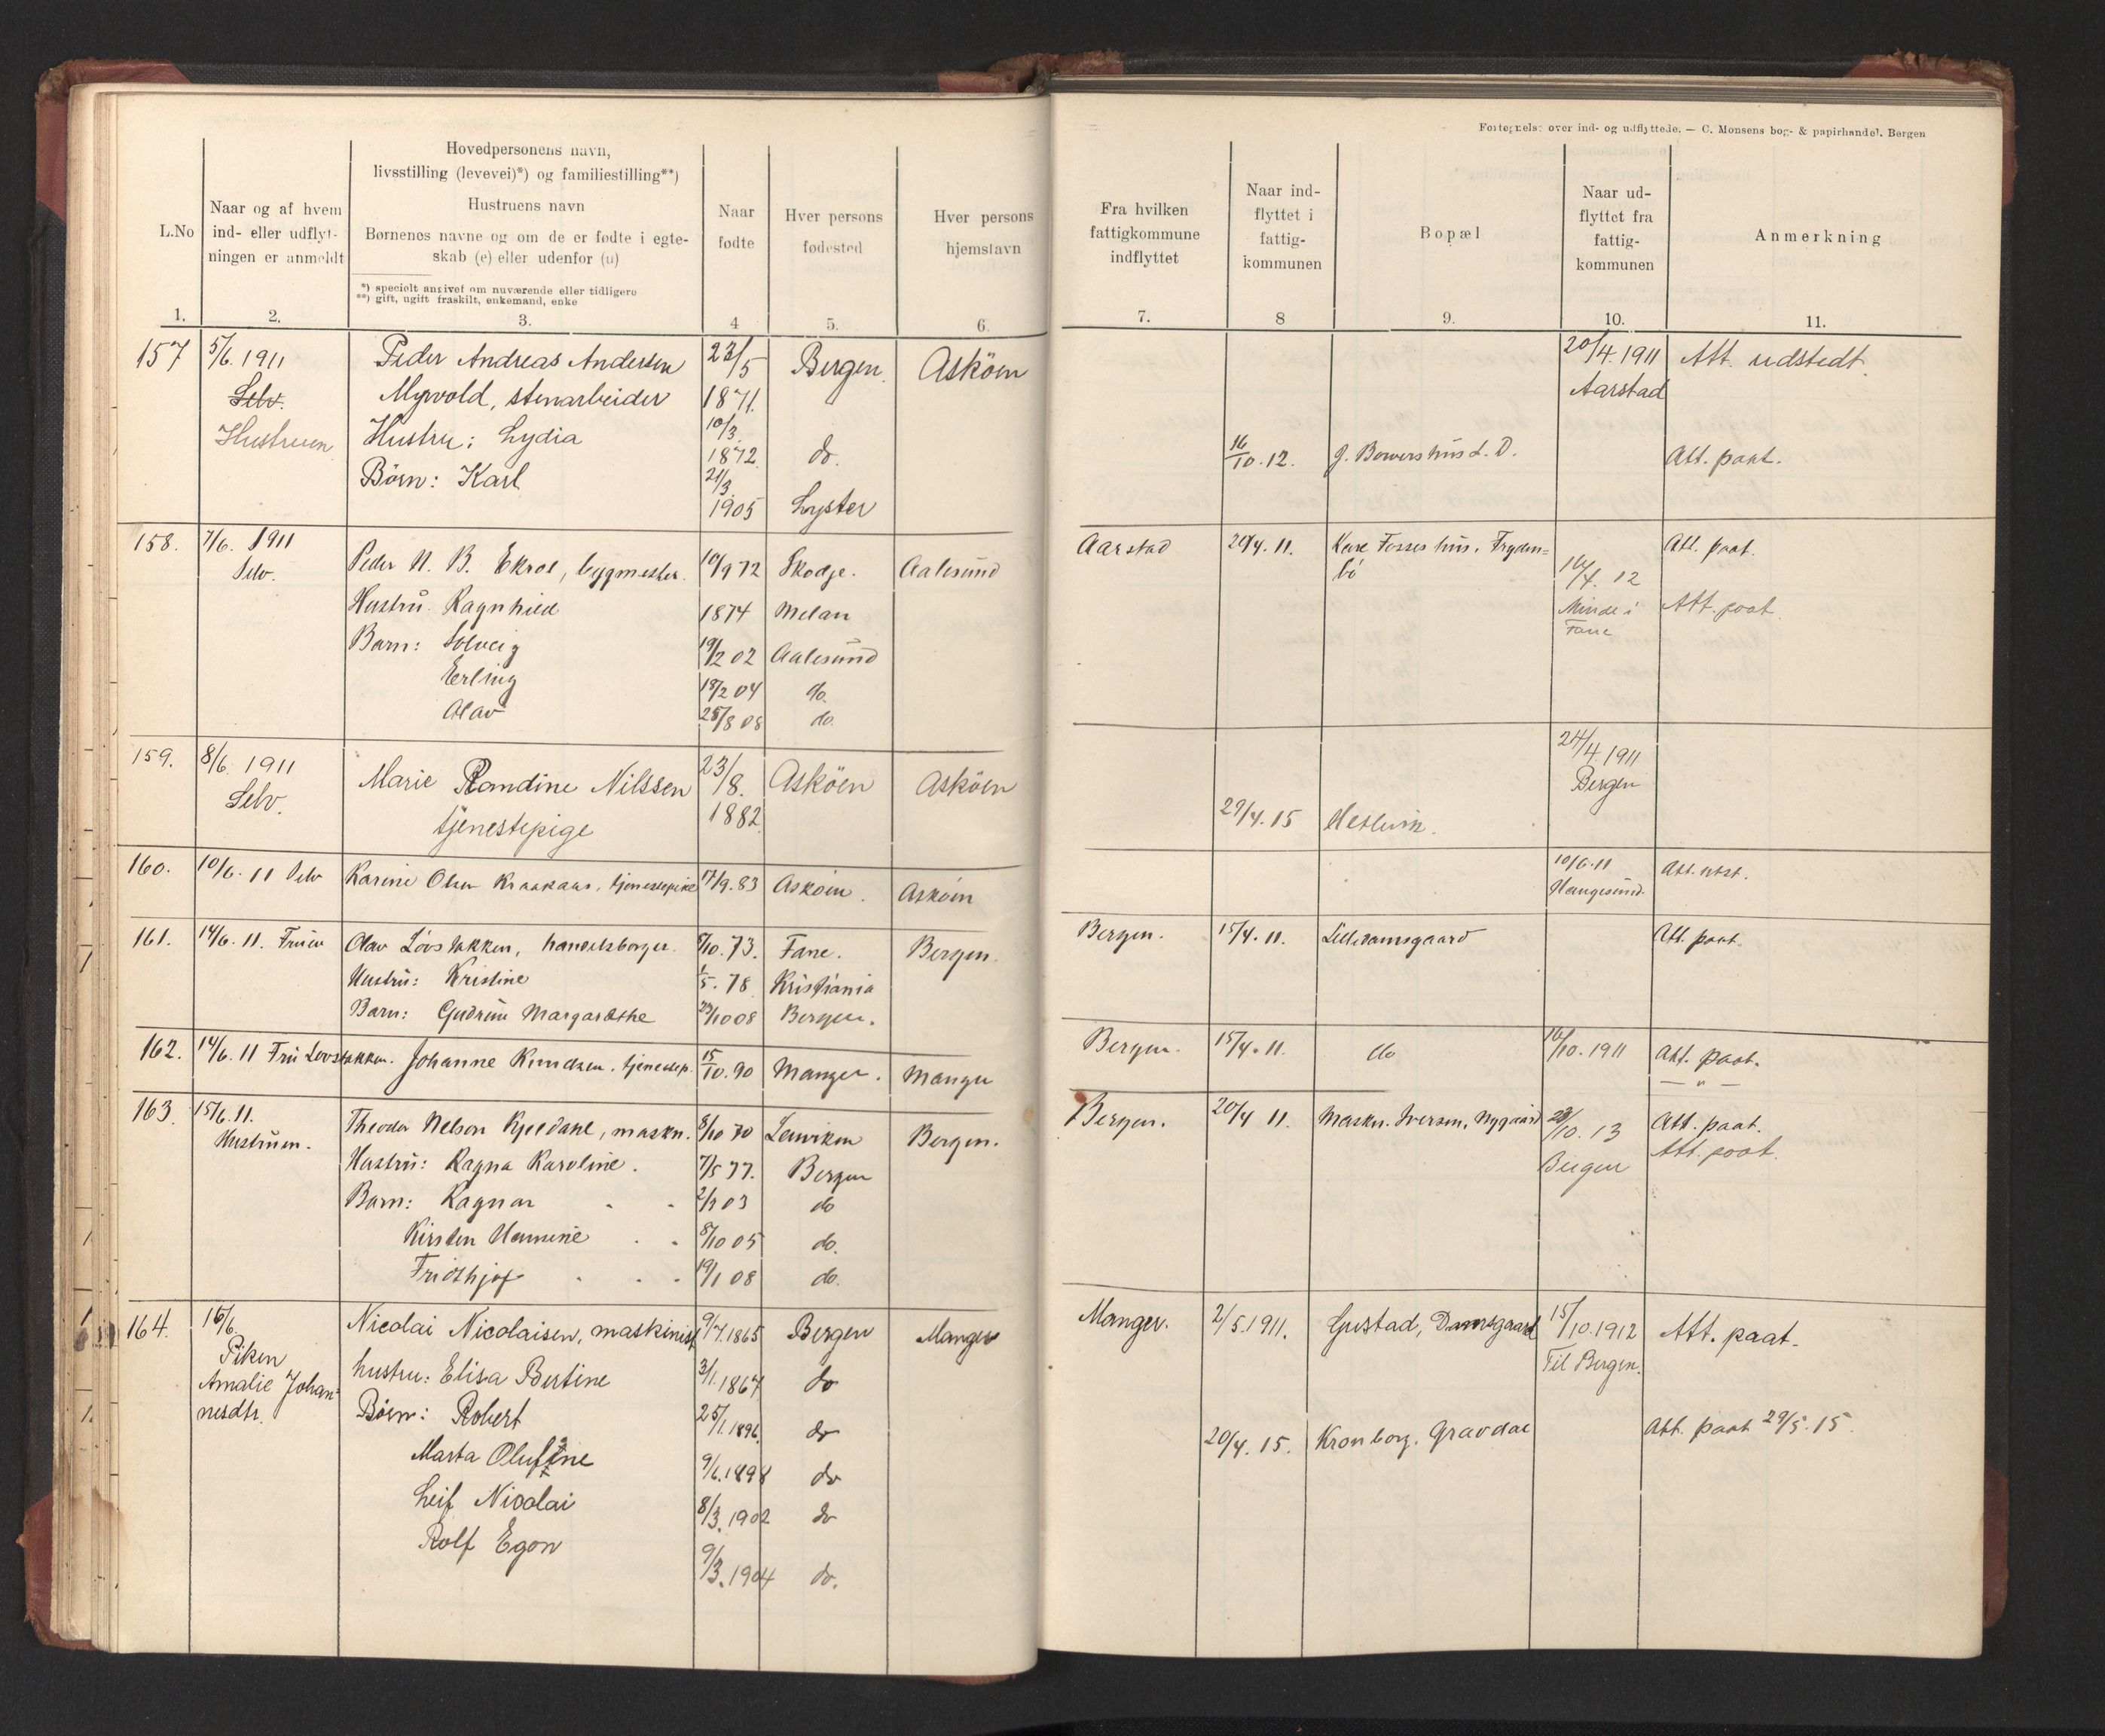 Fortegnelse over ind- og udflyttede. — C. Monsens bog- & papirhandel. Bergen
L.No
Naar og af hvem
ind- eller udflyt-
ningen er anmeldt
Hovedpersonens navn,
livsstilling (levevei)*) og familiestilling**)
Hustruens navn
Børnenes navne og om de er fødte i egte-
skab (e) eller udenfor (u)
*) specielt angivet om nuværende eller tidligere
**) gift, ugift fraskilt, enkemand, enke
Naar
fødte
Hver persons
fødested
Hver persons
hjemstavn
Fra hvilken
fattigkommune
indflyttet
Naar ind-
flyttet i
fattig-
kommunen
Bopæl
Naar ud-
flyttet fra
fattig-
kommunen
Anmerkning
1. 2. 3. 4 5. 6. 7. 8 9. 10. 11.
157 5/6. 1911 Peder Andreas Andersen 23/5 Bergen. Asköen 20/4. 1911 Att. udstedt.
Selv. Myrvold, stenarbeider 1871. Aarstad
Hustruen Hustru: Lydia 10/3. 1872. do. 16/10. 12. J. Bowers hus L. D. Att. paat.
Börn: Karl 21/3. 1905 Lyster
158. 7/6. 1911 Peder N. B. Ekroe, bygmester. 10/9 72 Skodje. Aalesund Aarstad 29/4. 11. Fosses hus, Fryden= Att. paat.
Selv. bö
Hustru Ragnhild 1874 Melan 14/4. 12 Att. paat.
Minde i
Fane
Barn: Solveig 19/2 02 Aalesund
Erling 18/2 04 do.
Olav 28/8 08 do.
159. 8/6. 1911 Marie Randine Nilssen 23/8. Asköen Asköen 24/4. 1911
Selv. tjenestepige 1882 Bergen
29/4. 15
160. 10/6. 11 Selv Karine Olsen tjenestepike 17/9. 83 Asköen. Asköen 10/6. 11 Att. utst.
Haugesund.
161. 14/6. 11. Fruen Olav Lövstakken, handelsborger. 8/10. 73. Fane. Bergen. Bergen. 15/4. 11. Lilledamsgaard Att. paat.
Hustru: Kristine 1/5. 78 Kristiania
Barn: Gudrun Margarethe 29/10 08 Bergen.
162. 14/6. 11 Fru Lövstakken. Johanne Knudsen. tjenestep. 15/10. 90 Manger. Manger Bergen. 15/4. 11. do 16/10. 1911 Att. paat.
— " —
163. 15/6. 11. Theodor Nelson Kjeldahl, maskn. 8/10 70 Lerviken Bergen. Bergen. 20/4 11. Maskn. Iversen, Nygaard 20/10. 13 Att. paat.
Hustruen. Bergen Att. paat.
Hustru: Ragna Karoline. 7/5 77. Bergen
Barn: Ragnar 2/9 03 do
Kirsten Hermine 8/10 05 do.
Fridthjof 19/1 08 do.
164. 16/6. Nicolai Nicolaisen, maskinist 9/7. 1865 Bergen Manger Manger. 2/5. 1911. Gustad, Damsgaard 15/10. 1912 Att. paat.
Til Bergen.
Piken
Amalie Johan-
nesdtr.
hustru: Elisa Bertine 3/1. 1867 do
Börn: Robert 25/1. 1896. do
20/4. 15. Kronborg. Gravdal Att. paat 29/5. 15.
Marta Olufine 9/6. 1898 do
Leif Nicolai 8/3. 1902 do
Rolf Egon 9/3. 1904 do.